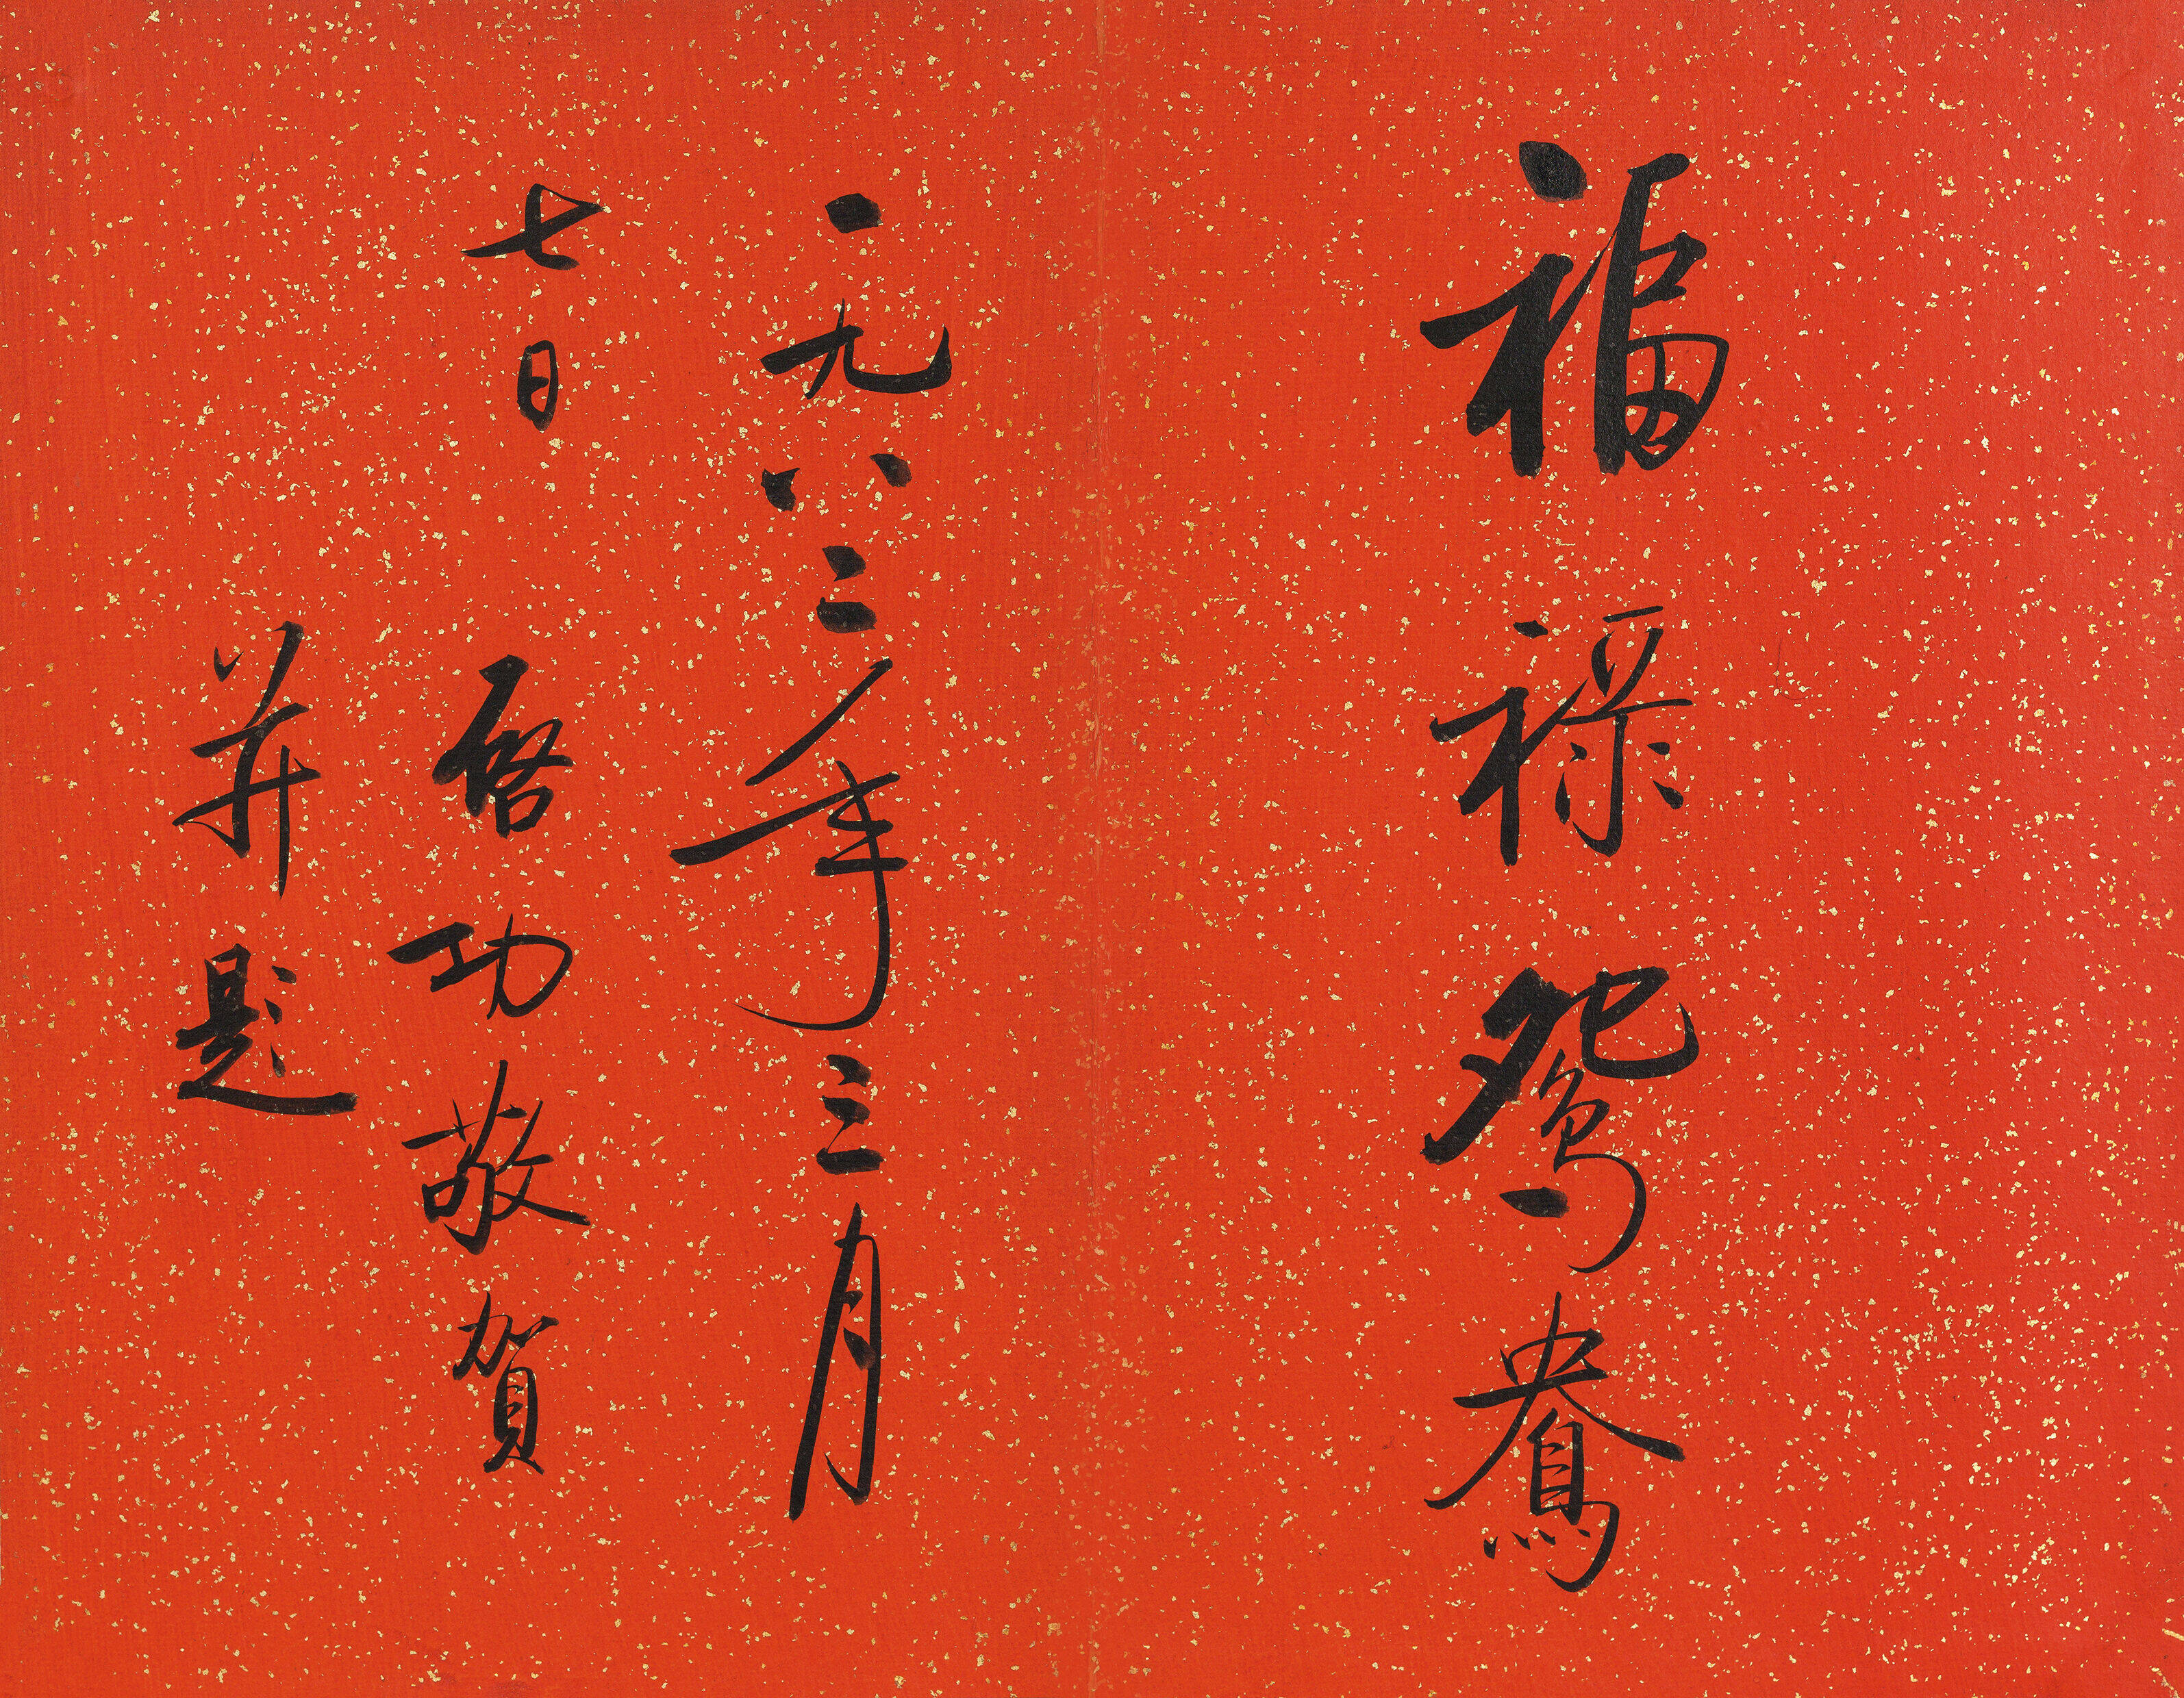 福祿鴛鴦
一九八三年三月
七日
啓功敬賀
并題